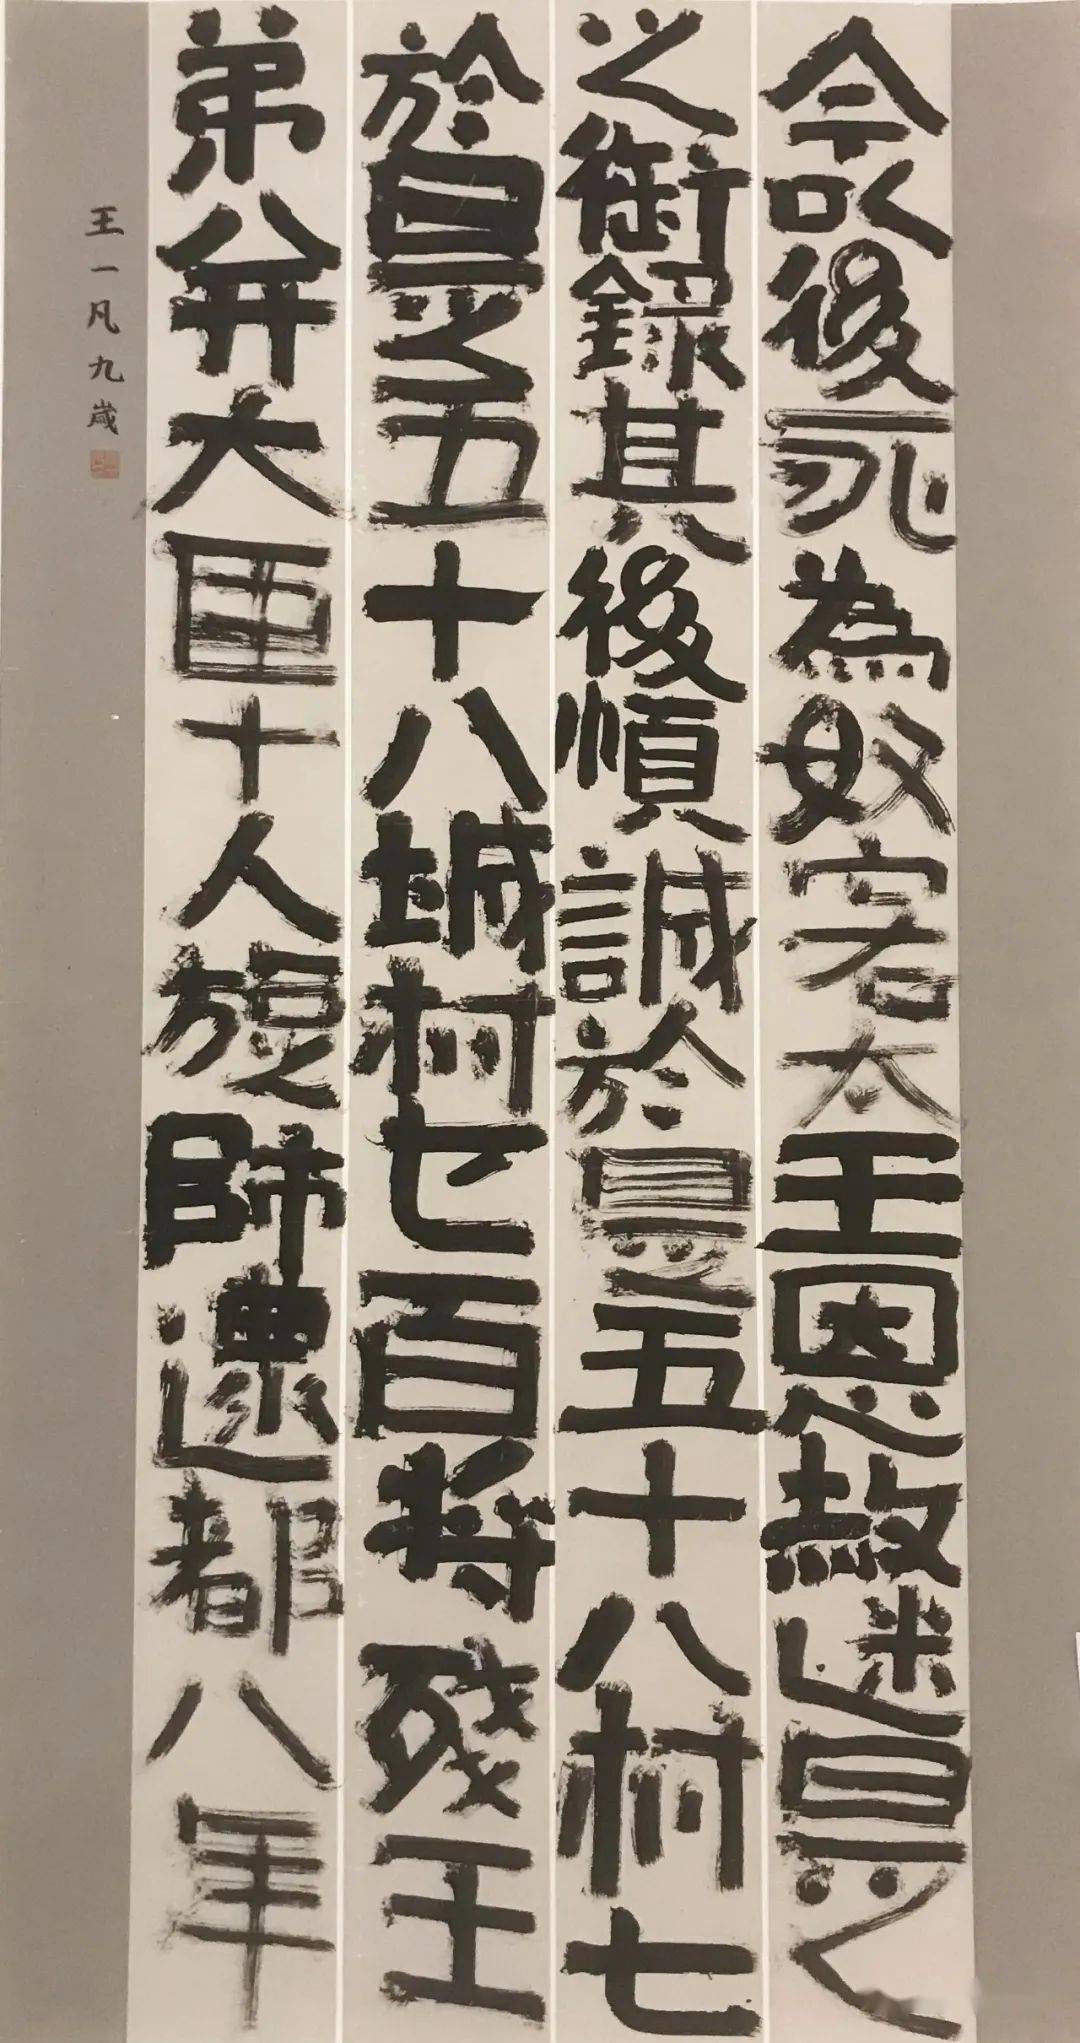 今以後永為奴客太王恩赦迷是
之御錄其後順誠於是五十八村七
於是五十八城村七百將殘王
弟并大臣十人旋師還都八年
王一凡九歲